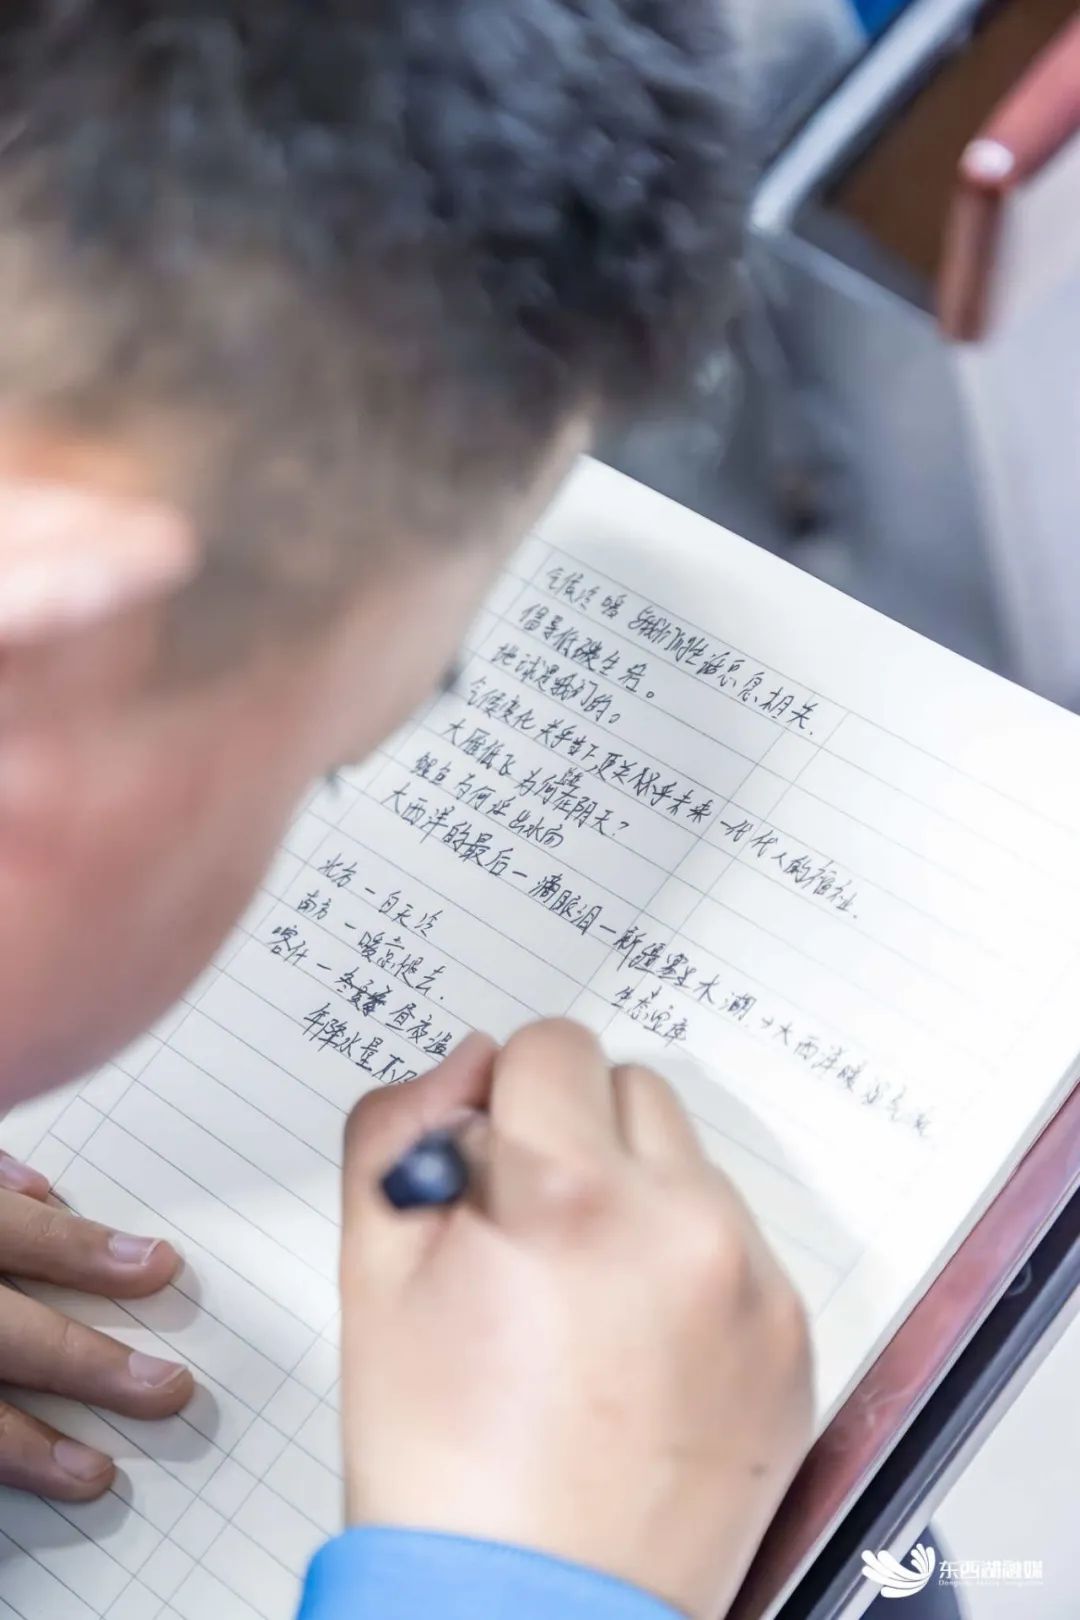 气候冷暖 与我们的生活息息相关.
倡导低碳生活。
地球是我们的。
气候变化 关乎当下,更关乎未来 一代代人的福祉.
大雁低飞 为何跟在阴天?
鲤鱼为何浮出水面
大西洋的最后一滴眼泪—新疆赛里木湖.→大西洋暖湿气流
生态宝库
北方 — 白天冷
南方 — 暖意褪去.
喀什 — 昼夜温
年降水量
东西湖融媒